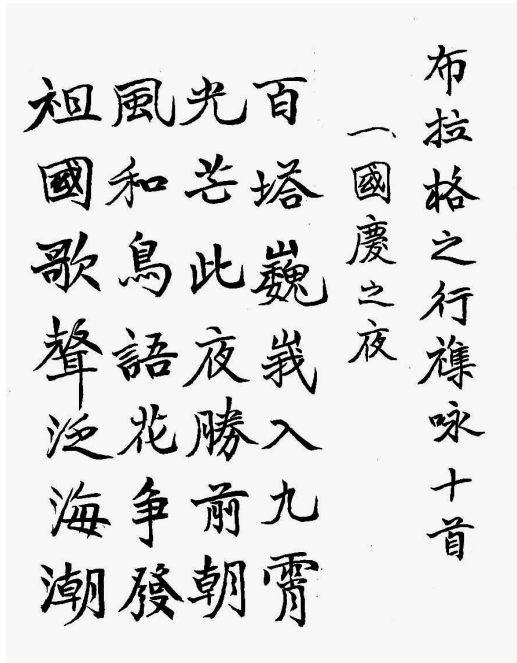 布拉格之行襍咏十首
一、國慶之夜
百塔巍峩入九霄
光芒此夜勝前朝
風和鳥語花争發
祖國歌聲泛海潮